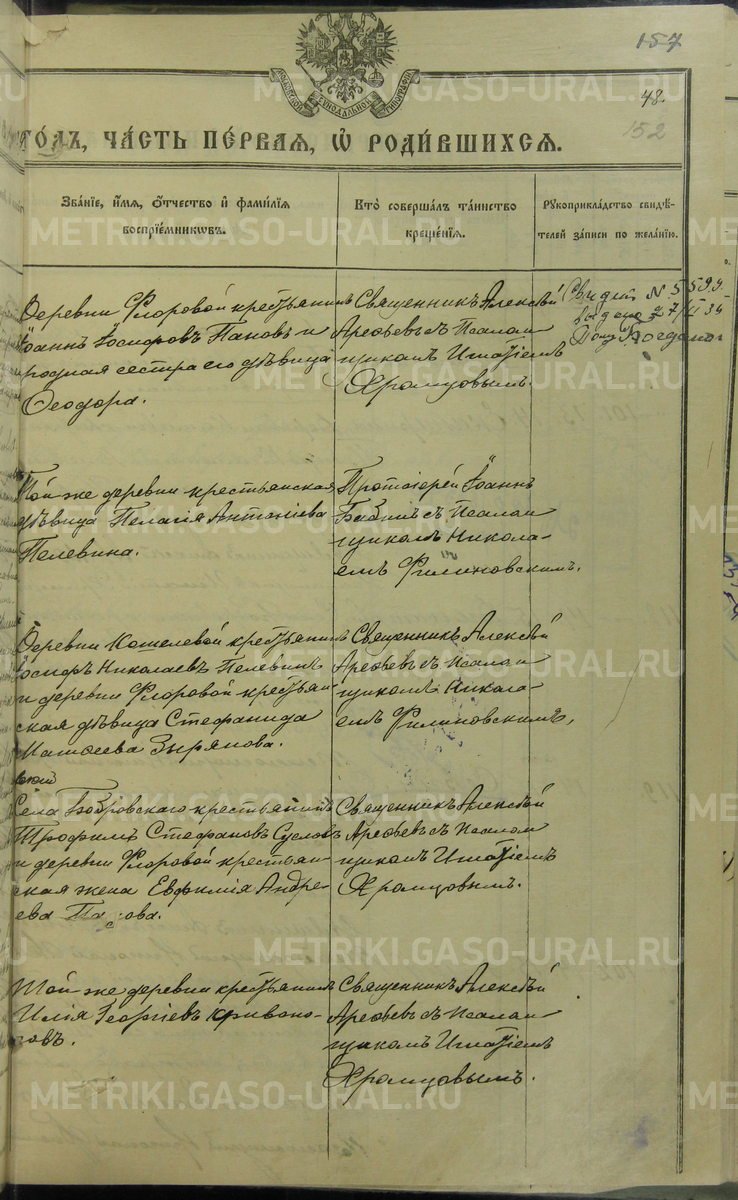 157
48.
152
МОСКОВСКОЙ СѴНОДАЛЬНОЙ ТИПОГРАФІИ
ГО́ДЪ, ЧА́СТЬ ПЕ́РВАЯ, Ѡ҆ РОДИ́ВШИХСЯ.
Зва́нїе, и҆́мя, ѻ҆́тчество и҆ фами́лїя
воспрїе́мникѡвъ.
Кто̀ соверша́лъ та́инство
креще́нїя.
Рꙋкоприкла́дство свидѣ́-
телей за́писи по жела́нїю.
Деревни Флоровой крестьянинъ
Іоаннъ Іосифовъ Пановъ и
родная сестра его дѣвица
Ѳеодора.
Священникъ Алексѣй
Арефьевъ съ Псалом
щикомъ Игнатіемъ
Храмцовымъ.
Свидет N 5593.
выдано 27/II 34
Богданов
Той же деревни крестьянская
дѣвица Пелагія Антоніева
Пелевина.
Протоіерей Іоаннъ
съ Псалом
щикомъ Никола-
емъ Филиновскимъ.
Деревни Кошелевой крестьянинъ
Іосифъ Николаевъ Пелевинъ
и деревни Флоровой крестьян-
ская дѣвица Стефанида
Матѳеева Зырянова.
Священникъ Алексѣй
Арефьевъ съ Псалом
щикомъ Никола-
емъ Филиновскимъ.
Села Бобровскаго крестьянинъ
Трофимъ Стефановъ Сусловъ
и деревни Флоровой крестьян-
ская жена Евфимія Андре-
ева Панова.
Священникъ Алексѣй
Арефьевъ съ Псалом
щикомъ Игнатіемъ
Храмцовымъ.
Той же деревни крестьянинъ
Илія Георгіевъ Кривоно-
говъ.
Священникъ Алексѣй
Арефьевъ съ Псалом
щикомъ Игнатіемъ
Храмцовымъ.
METRIKI.GASO-URAL.RU